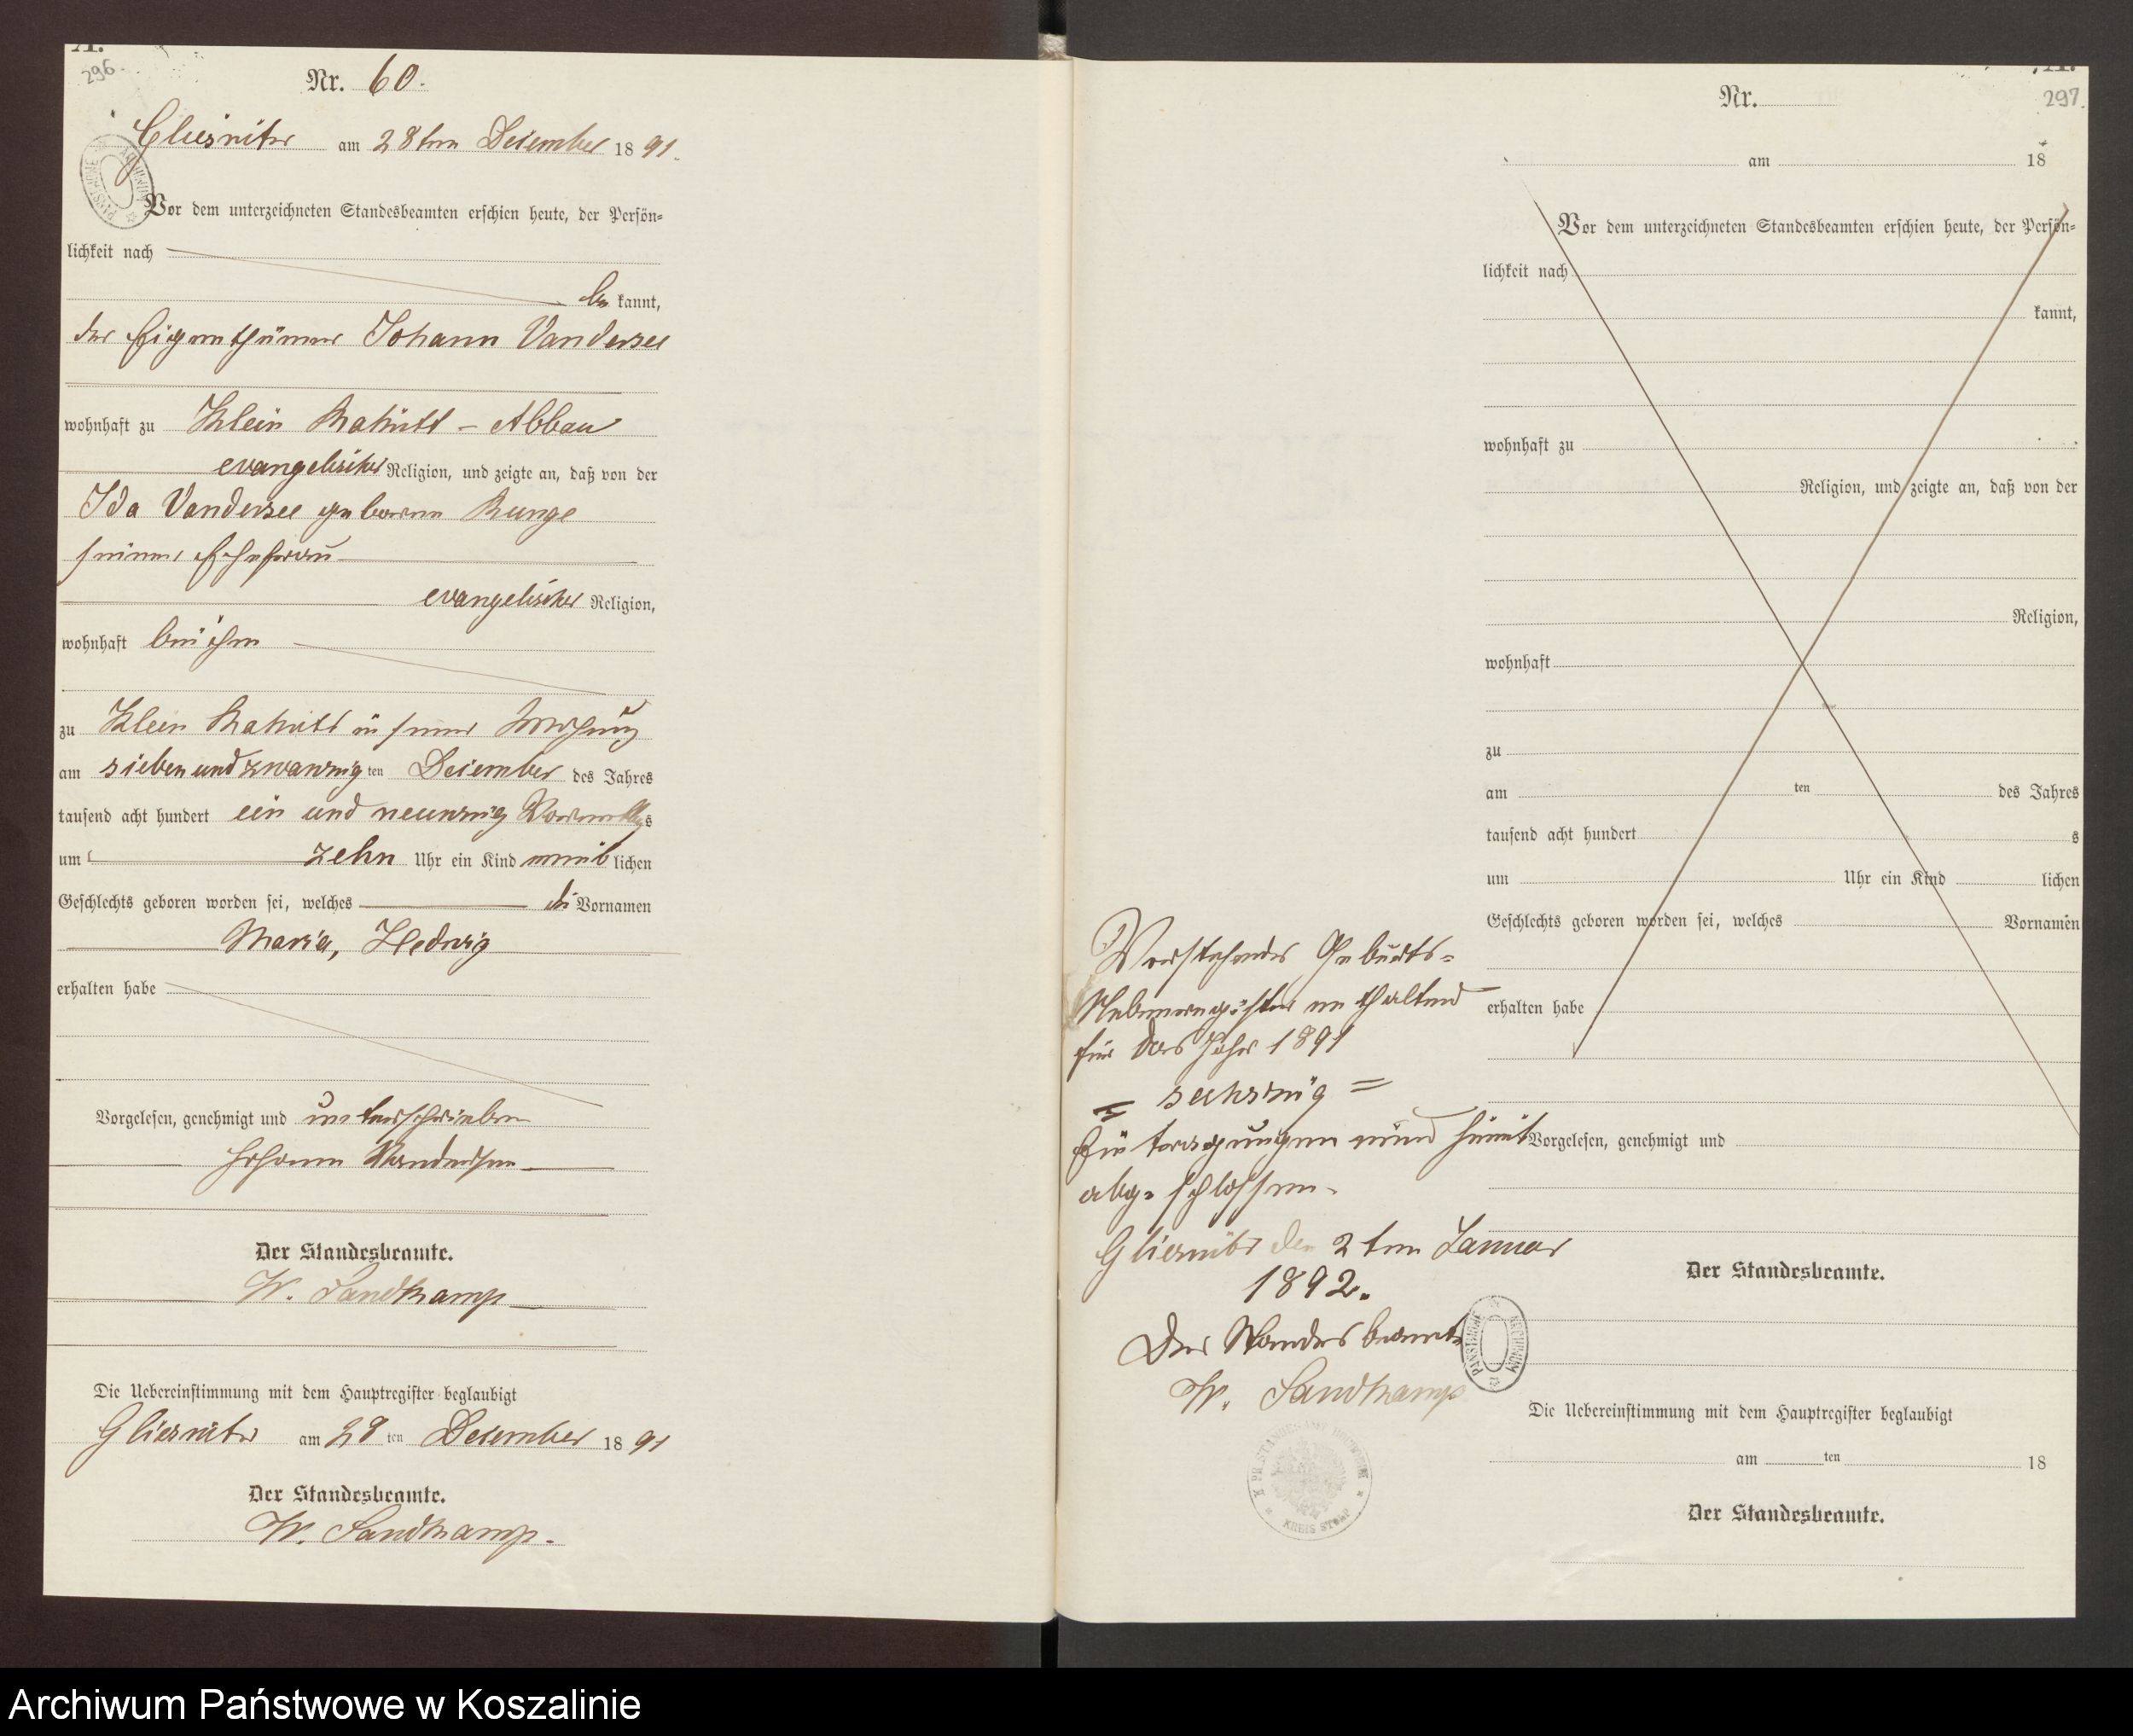 A.
296.
Nr. 60.
Gliesnitz am 28ten Dezember 1891.
Vor dem unterzeichneten Standesbeamten erschien heute, der Persön-
lichkeit nach
be kannt,
der Eigenthümer Johann Vandersee
wohnhaft zu Klein Machmin - Abbau
evangelischer Religion, und zeigte an, daß von der
Ida Vandersee geborene Runge
seiner Ehefrau
evangelischer Religion,
wohnhaft bei ihm
zu Klein in seiner Wohnung
am siebenundzwanzig ten Dezember des Jahres
tausend acht hundert ein und neunzig Vormittags
um zehn Uhr ein Kind weiblichen
Geschlechts geboren worden sei, welches die Vornamen
Maria, Hedwig
erhalten habe
Vorgelesen, genehmigt und unterschrieben
Johann Vandersee
Der Standesbeamte.
W. Sandkamp
Die Uebereinstimmung mit dem Hauptregister beglaubigt
Gliesnitz am 28 ten Dezember 1891
Der Standesbeamte.
W. Sandkamp.
Vorstehendes Geburts-
Nebenregister enthaltend
für das Jahr 1891
= sechszig =
Eintragungen wird hiermit
abgeschlossen.
Gliesnitz den 2ten Januar
1892.
Der Standesbeamte
W. Sandkamp
KREIS STOLP
A.
297.
Nr.
am 18
Vor dem unterzeichneten Standesbeamten erschien heute, der Persön-
lichkeit nach
kannt,
wohnhaft zu
Religion, und zeigte an, daß von der
Religion,
wohnhaft
zu
am ten des Jahres
tausend acht hundert s
um Uhr ein Kind lichen
Geschlechts geboren worden sei, welches Vornamen
erhalten habe
Vorgelesen, genehmigt und
Der Standesbeamte.
Die Uebereinstimmung mit dem Hauptregister beglaubigt
am ten 18
Der Standesbeamte.
Archiwum Państwowe w Koszalinie